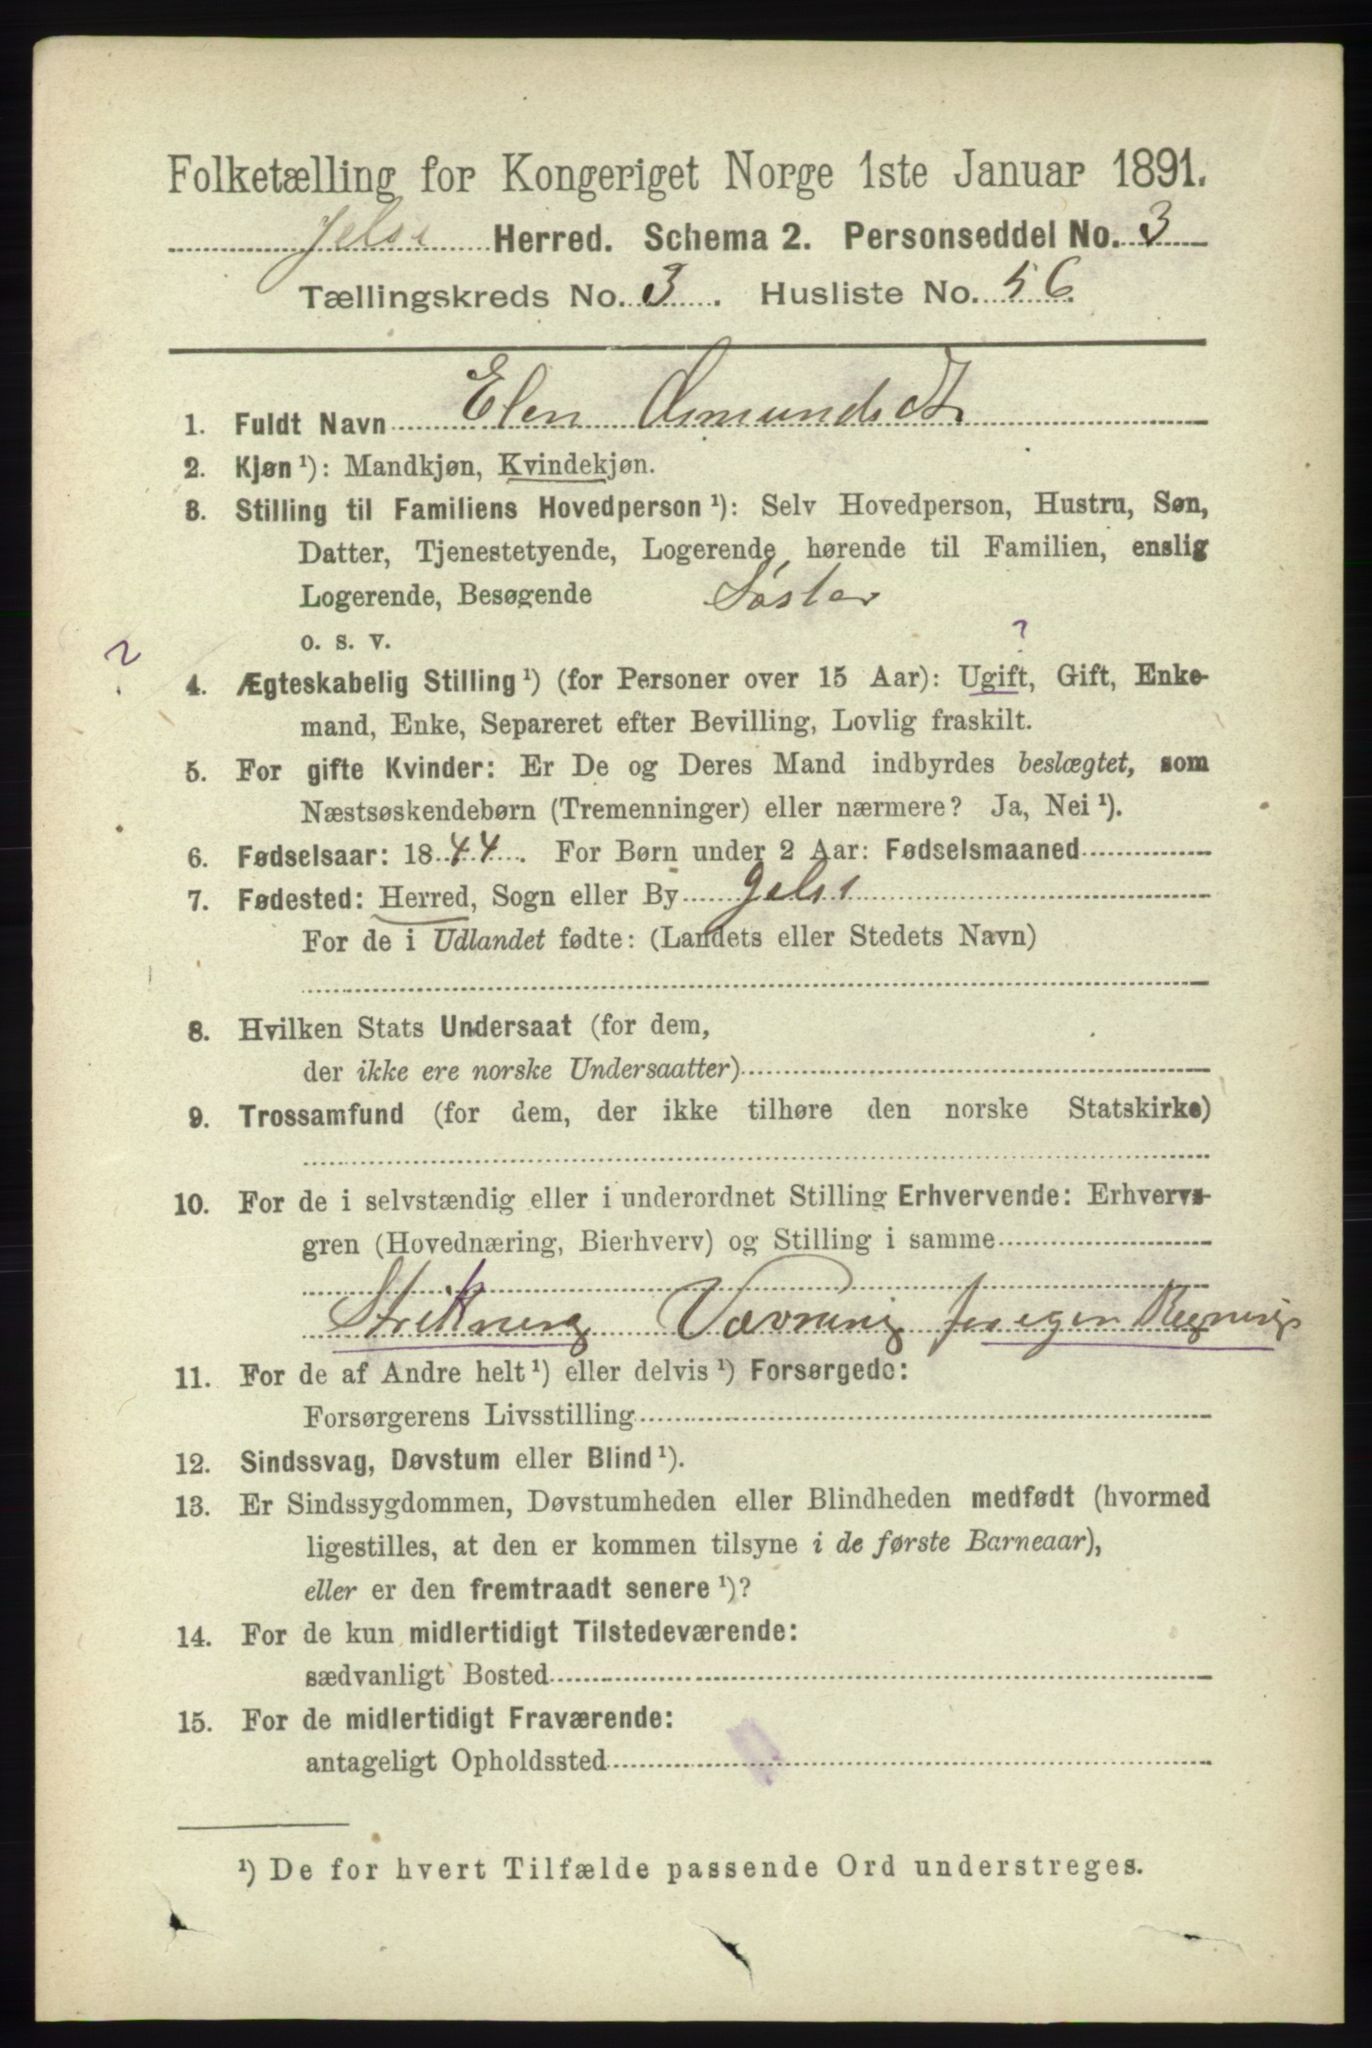 Folketælling for Kongeriget Norge 1ste Januar 1891.
Jelse Herred. Schema 2. Personseddel No. 3
Tællingskreds No. 3. Husliste No. 56
1. Fuldt Navn Elen Osmundsdt
2. Kjøn ¹): Mandkjøn, Kvindekjøn.
3. Stilling til Familiens Hovedperson ¹): Selv Hovedperson, Hustru, Søn,
Datter, Tjenestetyende, Logerende hørende til Familien, enslig
Logerende, Besøgende Søster
o. s. v.
?
?
4. Ægteskabelig Stilling ¹) (for Personer over 15 Aar): Ugift, Gift, Enke-
mand, Enke, Separeret efter Bevilling, Lovlig fraskilt.
5. For gifte Kvinder: Er De og Deres Mand indbyrdes beslægtet, som
Næstsøskendebørn (Tremenninger) eller nærmere? Ja, Nei ¹).
6. Fødselsaar: 1844. For Børn under 2 Aar: Fødselsmaaned
7. Fødested: Herred, Sogn eller By Jelse
For de i Udlandet fødte: (Landets eller Stedets Navn)
8. Hvilken Stats Undersaat (for dem,
der ikke ere norske Undersaatter)
9. Trossamfund (for dem, der ikke tilhøre den norske Statskirke)
10. For de i selvstændig eller i underordnet Stilling Erhvervende: Erhvervs-
gren (Hovednæring, Bierhverv) og Stilling i samme
Strikning Vævning for egen Regning
11. For de af Andre helt ¹) eller delvis ¹) Forsørgede:
Forsørgerens Livsstilling
12. Sindssvag, Døvstum eller Blind ¹).
13. Er Sindssygdommen, Døvstumheden eller Blindheden medfødt (hvormed
ligestilles, at den er kommen tilsyne i de første Barneaar),
eller er den fremtraadt senere ¹)?
14. For de kun midlertidigt Tilstedeværende:
sædvanligt Bosted
15. For de midlertidigt Fraværende:
antageligt Opholdssted
¹) De for hvert Tilfælde passende Ord understreges.